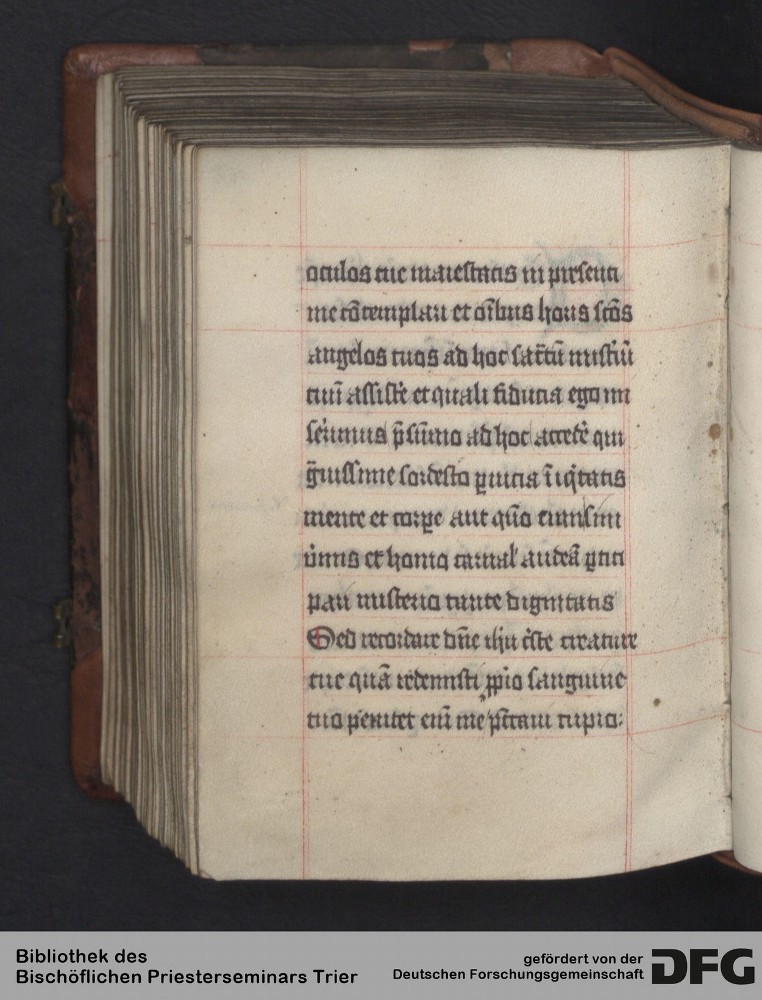 oculos tue maiestatis in presenti
me cōtemplari et oībus horis scōs
angelos tuos ad hoc sac̄tū mist'iū
tuū assist'e et quali fiducia ego mi
ser'imus p̄sūmo ad hoc accede' qui
g̃uissime sordesco
mente et corpe aut quo
v'mis et homo carnal' audeā
pari misterio tante dignitatis
Sed recordare dn̄e ihū c'ste creature
tue quā redemisti pp'io sanguine
tuo penitet enī me pc̄cam cupio:
Bibliothek des
Bischöflichen Priesterseminars Trier
gefördert von der
Deutschen Forschungsgemeinschaft
DFG